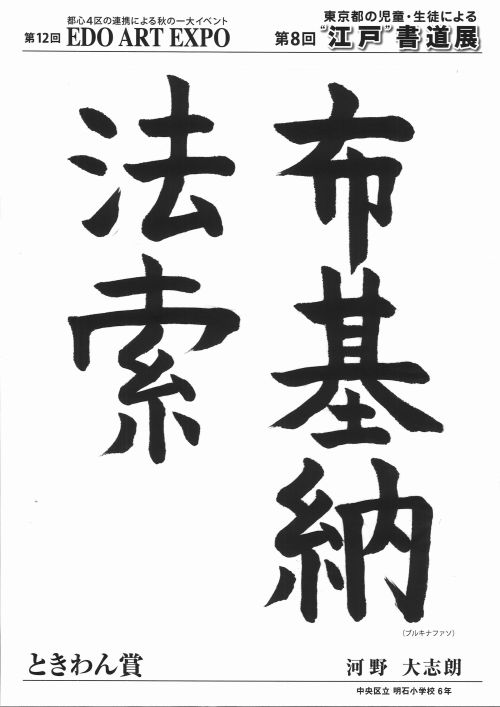 都心4区の連携による秋の一大イベント
第12回 EDO ART EXPO
東京都の児童・生徒による
第8回 "江戸"書道展
布基納
法索
(ブルキナファソ)
ときわん賞
河野 大志朗
中央区立 明石小学校 6年